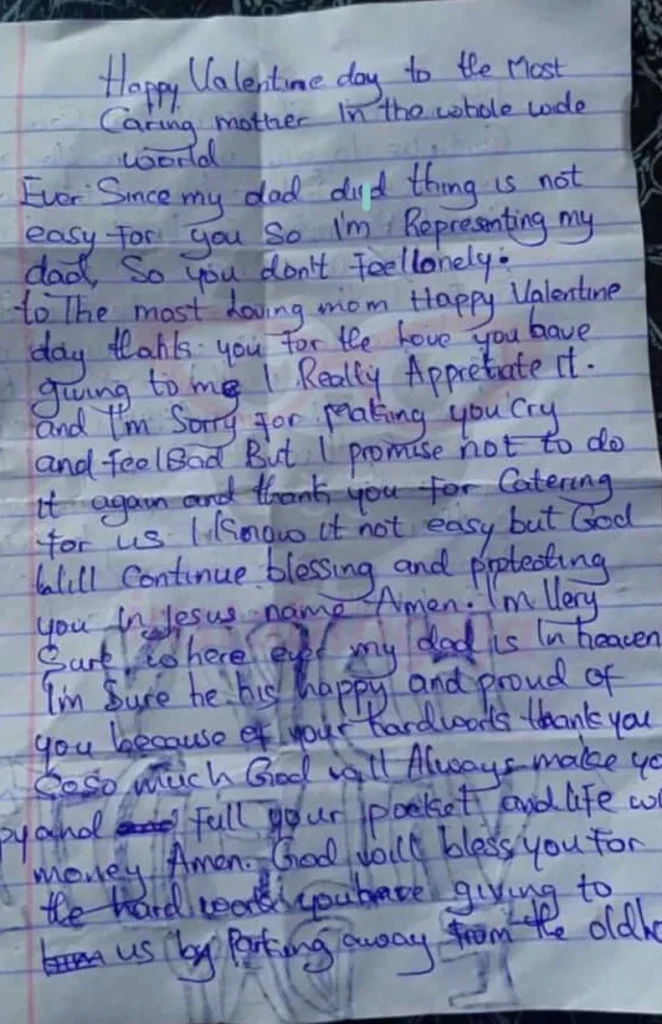 Happy Valentine day to the Most
Caring mother In the whole wide
world
Ever Since my dad died thing is not
easy for you So I'm Representing my
dad, So you don't Feel lonely.
to The most loving mom Happy Valentine
day thanks you for the love you have
giving to me I Really Appretiate it.
and I'm Sorry for making you Cry
and feel Bad But I promise not to do
it again and thank you for Catering
for us I Know it not easy but God
Will Continue blessing and protecting
you In Jesus name Amen. I'm Very
Sure where ever my dad is In heaven
I'm Sure he his happy and proud of
you because of your hardworks thank you
so much God will Always make yo
py and full your pocket and life wi
money Amen. God will bless you for
the hard work you have giving to
us by Parking away from the old ho